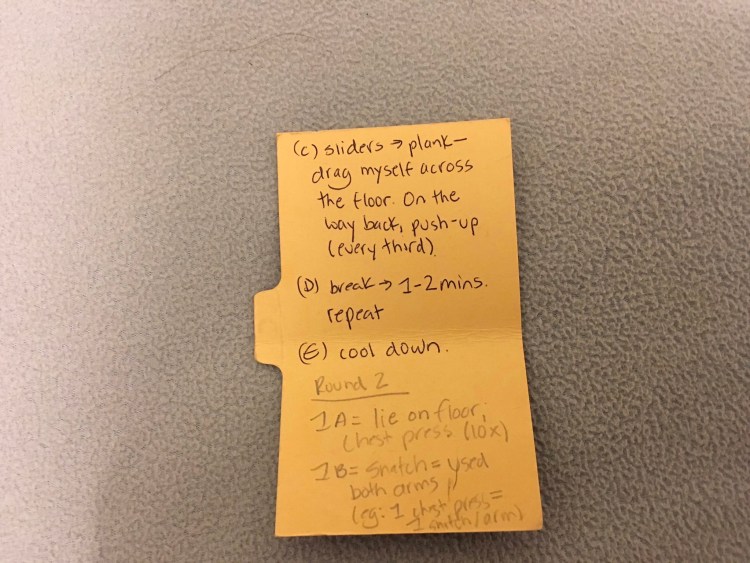 (C) sliders → plank—
drag myself across
the floor. On the
way back, push-up
(every third).
(D) break → 1-2 mins.
repeat
(E) cool down.
Round 2
1A = lie on floor;
chest press (10x)
1B = Snatch = used
both arms
(eg: 1 chest press =
1 snatch/arm)